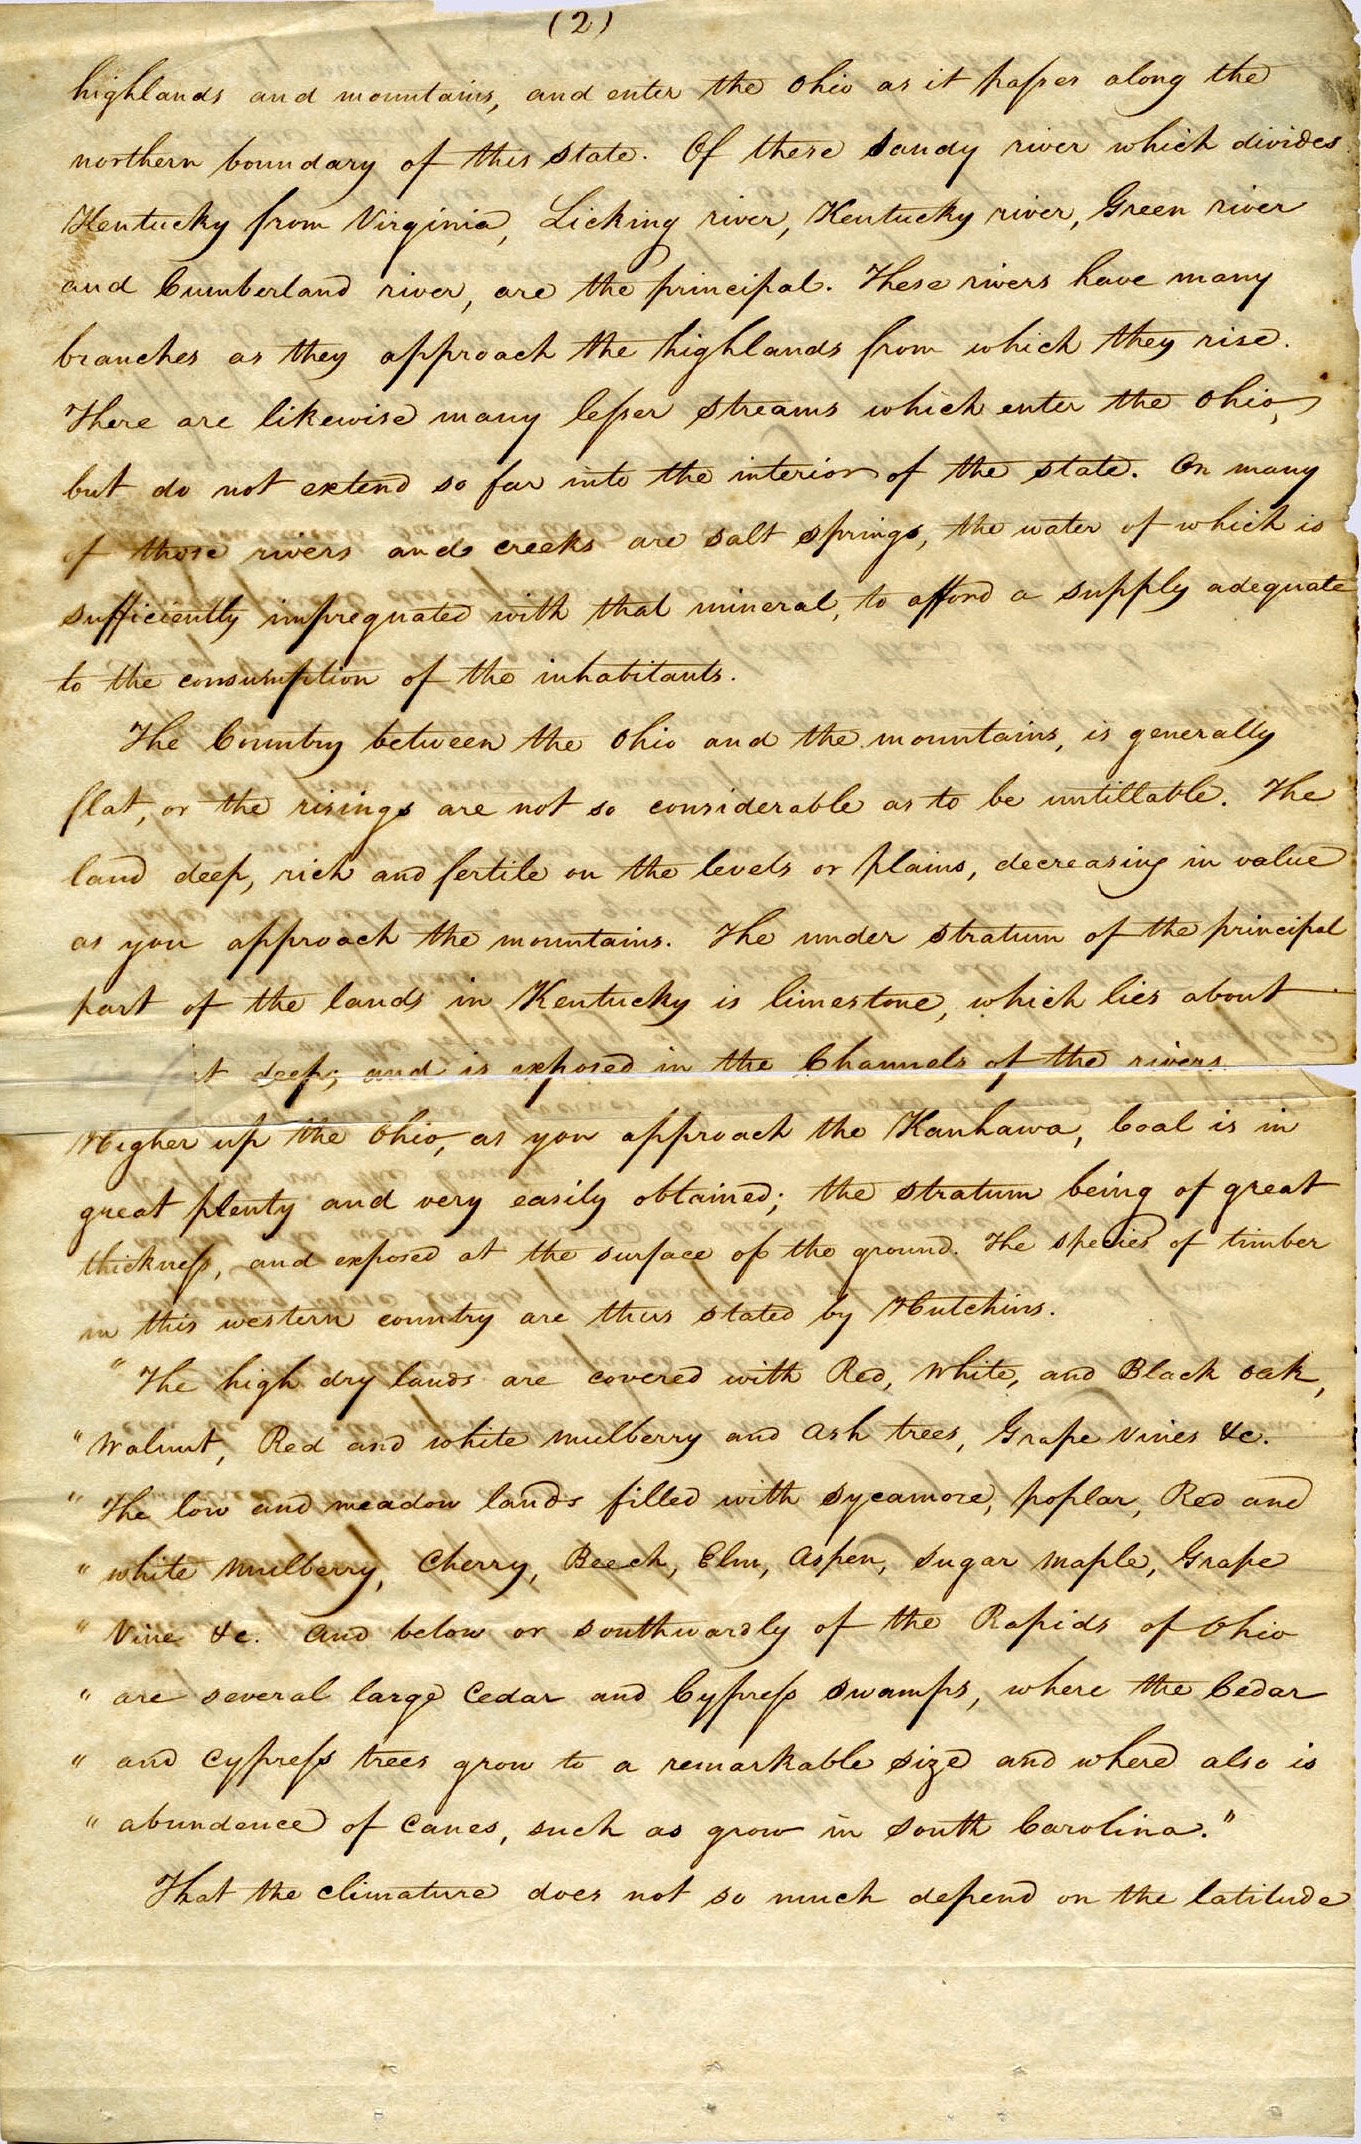 (2)
highlands and mountains, and enter the Ohio as it passes along the
northern boundary of this state. Of these Sandy river which divides
Kentucky from Virginia, Licking river, Kentucky river, Green river
and Cumberland river, are the principal. These rivers have many
branches as they approach the highlands from which they rise.
There are likewise many lesser streams which enter the Ohio,
but do not extend so far into the interior of the state. On many
of those rivers and creeks are salt springs, the water of which is
sufficiently impregnated with that mineral, to afford a supply adequate
to the consumption of the inhabitants.
The Country between the Ohio and the mountains, is generally
flat, or the risings are not so considerable as to be untillable. The
land deep, rich and fertile on the levels or plains, decreasing in value
as you approach the mountains. The under stratum of the principal
part of the lands in Kentucky is limestone, which lies about
deep; and is exposed in the Channels of the rivers.
Higher up the Ohio, as you approach the Kanhawa, Coal is in
great plenty and very easily obtained; the stratum being of great
thickness, and exposed at the surface of the ground. The species of timber
in this western country are thus stated by Hutchins.
" The high dry lands are covered with Red, White, and Black oak,
" Walnut, Red and white mulberry and ash trees, Grape Vines &c.
" The low and meadow lands filled with sycamore, poplar, Red and
" white mulberry, Cherry, Beech, Elm, Aspen, sugar maple, Grape
" Vine &c. And below or southwardly of the Rapids of Ohio
" are several large Cedar and Cypress swamps, where the Cedar
" and Cypress trees grow to a remarkable size and where also is
" abundence of Canes, such as grow in South Carolina."
That the climature does not so much depend on the latitude